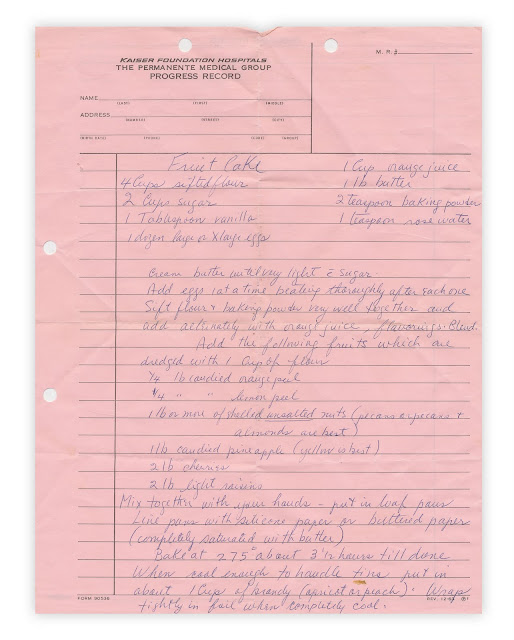 KAISER FOUNDATION HOSPITALS
THE PERMANENTE MEDICAL GROUP
PROGRESS RECORD
M. R. #
NAME
(LAST) (FIRST) (MIDDLE)
ADDRESS
(NUMBER) (STREET) (CITY)
(BIRTH DATE) (PHONE)
Fruit Cake
4 Cups sifted flour
2 Cups sugar
1 Tablespoon vanilla
1 dozen large or Xlarge eggs
1 Cup orange juice
1 lb butter
2 teaspoon baking powder
1 teaspoon rose water
Cream butter until very light c̄ sugar.
Add eggs 1 at a time beating thoroughly after each one
Sift flour & baking powder very well together and
add altinately with orange juice, flavorings. Blend.
Add the following fruits which are
dredged with 1 Cup of flour
1/4 lb candied orange peel
1/4 " " lemon peel
1 lb or more of shelled unsalted nuts (pecans or pecans +
almonds are best)
1 lb candied pineapple (yellow is best)
2 lb cherries
2 lb light raisins
Mix together with your hands - put in loaf pans
Line pans with silicone paper or buttered paper
(completely saturated with butter)
Bake at 275° about 3 1/2 hours till done
When cool enough to handle tins put in
about 1 Cup of brandy (apricot or peach). Wrap
tightly in foil when completely cool.
FORM 90536